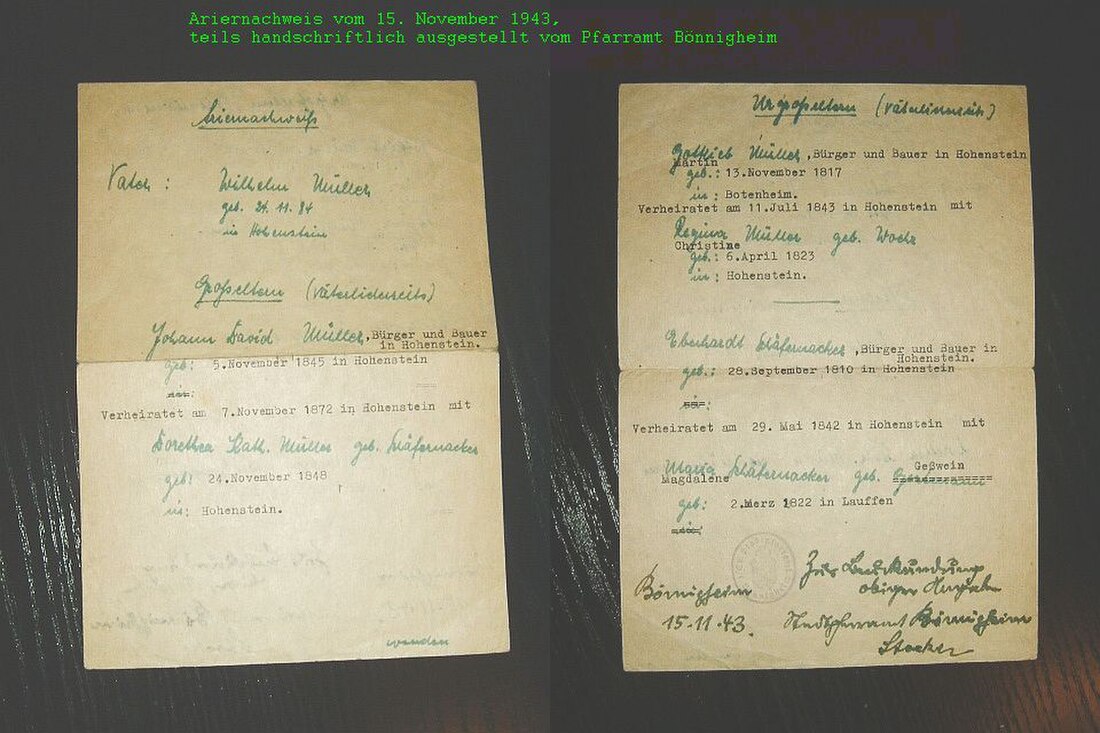 Ariernachweis vom 15. November 1943,
teils handschriftlich ausgestellt vom Pfarramt Bönnigheim
Ariernachweiß
Vater: Wilhelm Müller
geb. 24.11.84
in Hohenstein
Großeltern (Väterlicherseits)
Johann David Müller, Bürger und Bauer
in Hohenstein.
geb: 5.November 1845 in Hohenstein
in:
Verheiratet am 7.November 1872 in Hohenstein mit
Dorothea Kath. Müller geb. Schäfernacker
geb: 24.November 1848
in: Hohenstein.
wenden
Urgroßeltern (Väterlicherseits)
Gottlieb Müller, Bürger und Bauer in Hohenstein
Martin
geb.: 13.November 1817
in: Botenheim.
Verheiratet am 11.Juli 1843 in Hohenstein mit
Regina Müller geb. Wochr
Christine
geb: 6.April 1823
in: Hohenstein.
Eberhardt Schäfernacker, Bürger und Bauer in
Hohenstein.
geb.: 28.September 1810 in Hohenstein
in:
Verheiratet am 29. Mai 1842 in Hohenstein mit
Geßwein
Maria Schäfernacker geb.
Magdalene
geb: 2.Merz 1822 in Lauffen
in:
Zur Beurkundung
obiger Angaben
Bönnigheim
15.11.43. Stadtpfarramt Bönnigheim
Stocker